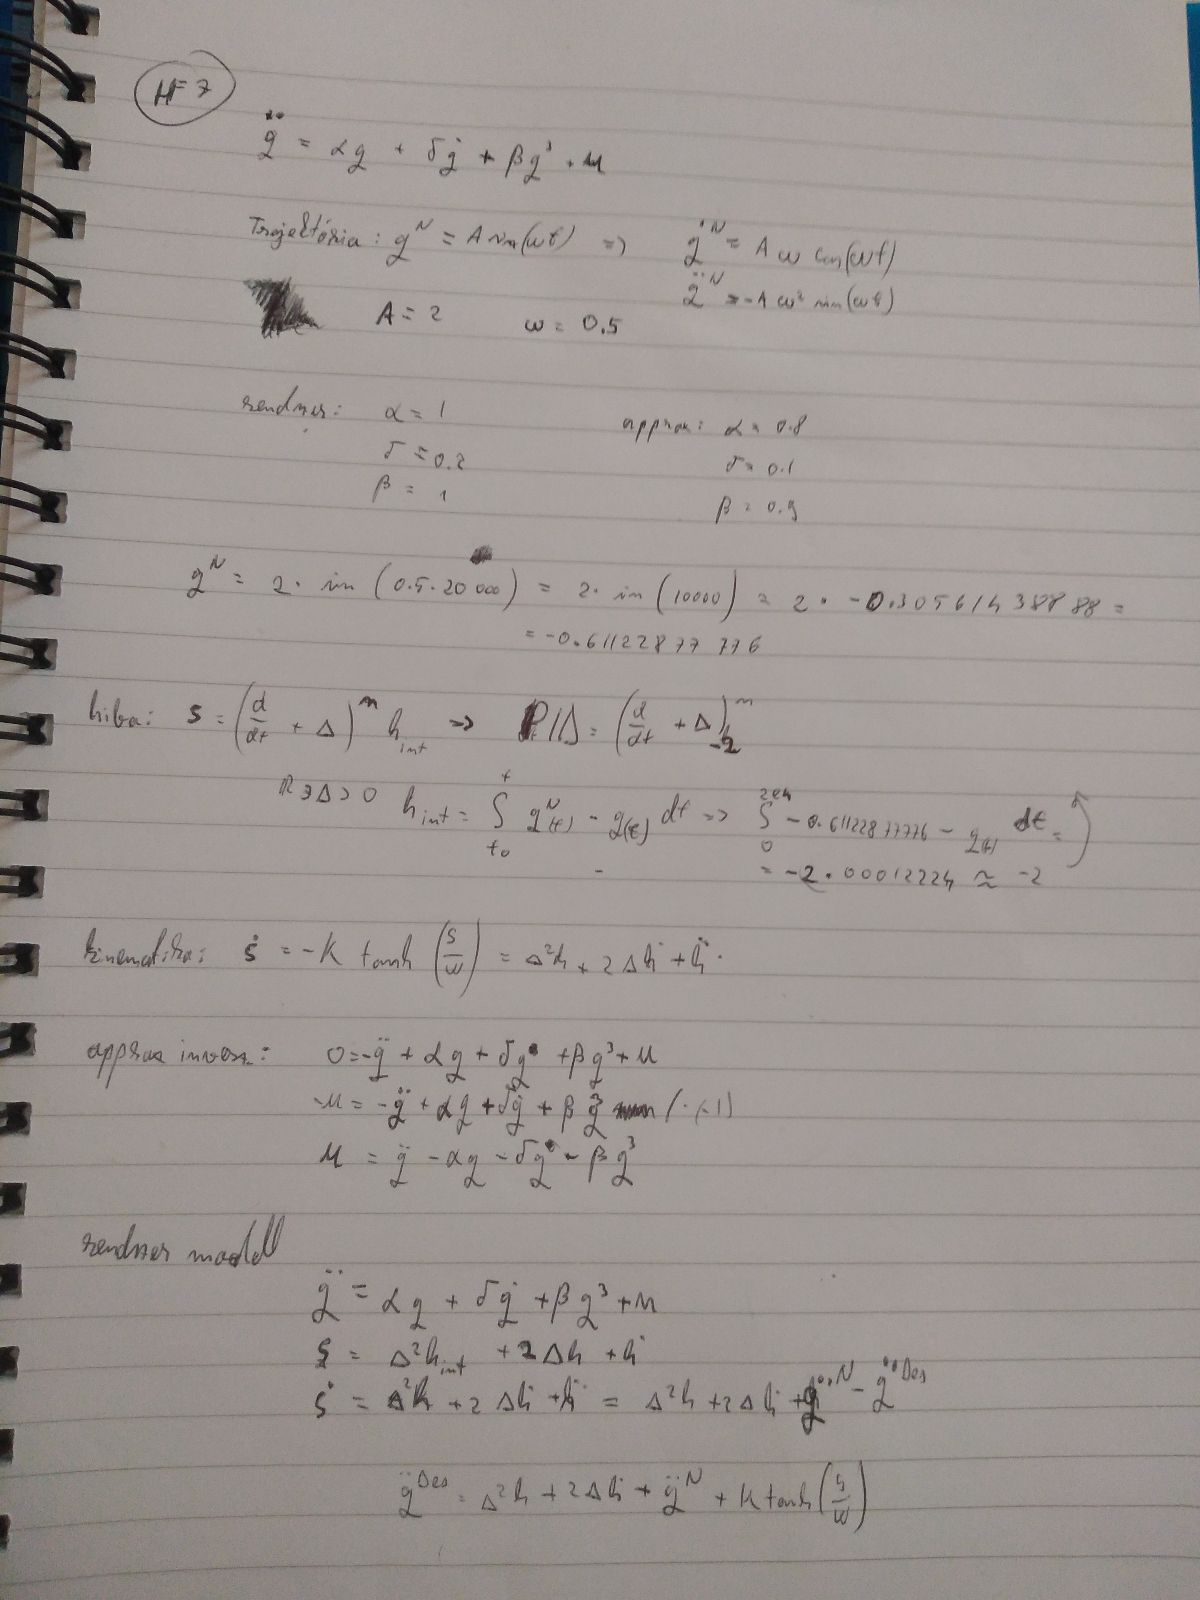 HF 7
q̈ = αq + δq̇ + βq³ + u
Trajektória: q^N = A sin(ωt) => q̇^N = A ω cos(ωt)
q̈^N = -A ω² sin(ωt)
A = 2 ω = 0.5
rendszer: α = 1 approx: α = 0.8
δ = 0.2 δ = 0.1
β = 1 β = 0.9
q^N = 2 · sin(0.5·20000) = 2 · sin(10000) = 2 · -0.30561438888 =
= -0.61122877776
hiba: S = (d/dt + Δ)^m h_int => PIΔ = (d/dt + Δ)^m
-2
ℝ∋Δ>0 h_int = ∫_{t_0}^{t} q^N(t) - q(t) dt => ∫_0 -0.61122877776 - q(t) dt =
= -2.00012224 ≈ -2
kinematika: Ṡ = -K tanh(S/w) = Δ²h + 2Δḣ + ḧ
approx inverz: 0 = -q̈ + αq + δq̇ + βq³ + u
-u = -q̈ + αq + δq̇ + βq³ /·(-1)
u = q̈ - αq - δq̇ - βq³
rendszer modell
q̈ = αq + δq̇ + βq³ + u
S = Δ²h_int + 2Δh + ḣ
Ṡ = Δ²h + 2Δḣ + ḧ = Δ²h + 2Δḣ + q̈^N - q̈^Des
q̈^Des = Δ²h + 2Δḣ + q̈^N + K tanh(S/w)